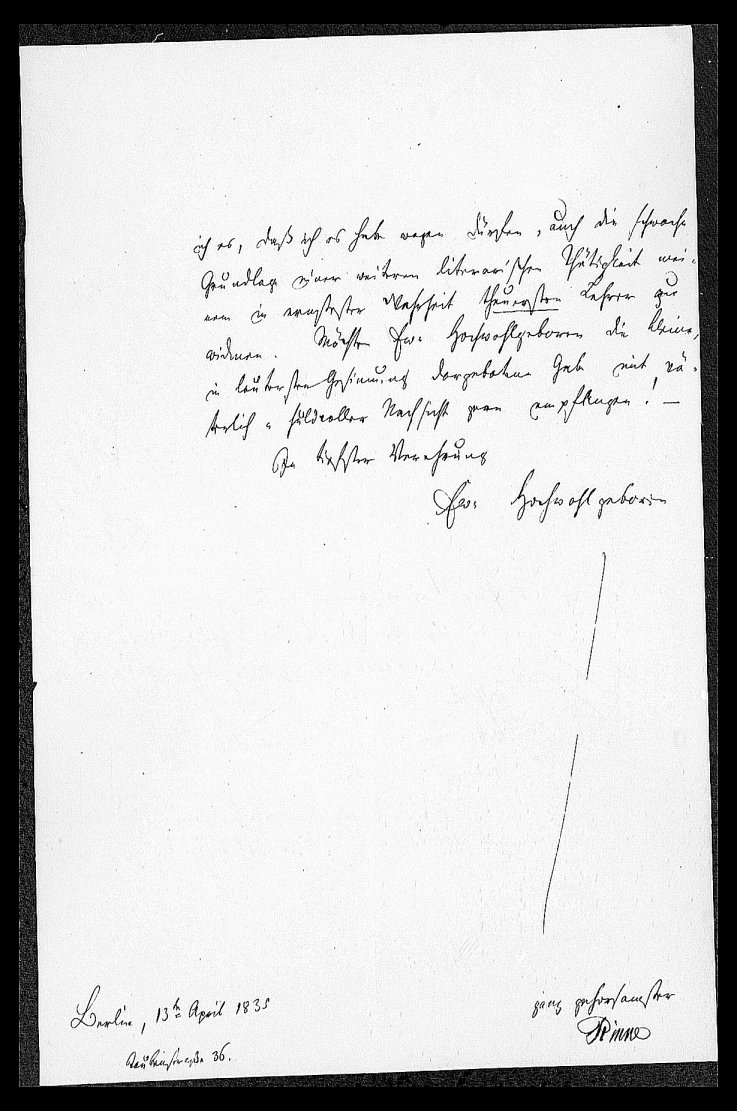 ich es, daß ich es habe wagen dürfen, auch die schwache
Grundlage einer weiteren literarischen Thätigkeit mei-
nem in ernstester Wahrheit theuersten Lehrer zu
widmen. Möchten Ew. Hochwohlgeboren die kleine,
in lauterster Gesinnung dargebotene Gabe mit vä-
terlich u huldvoller Nachsicht gern empfangen! —
In tiefster Verehrung
Ew. Hochwohlgeboren
ganz gehorsamster
Rinne
Berlin, 13te April 1835
Taubenstraße 36.